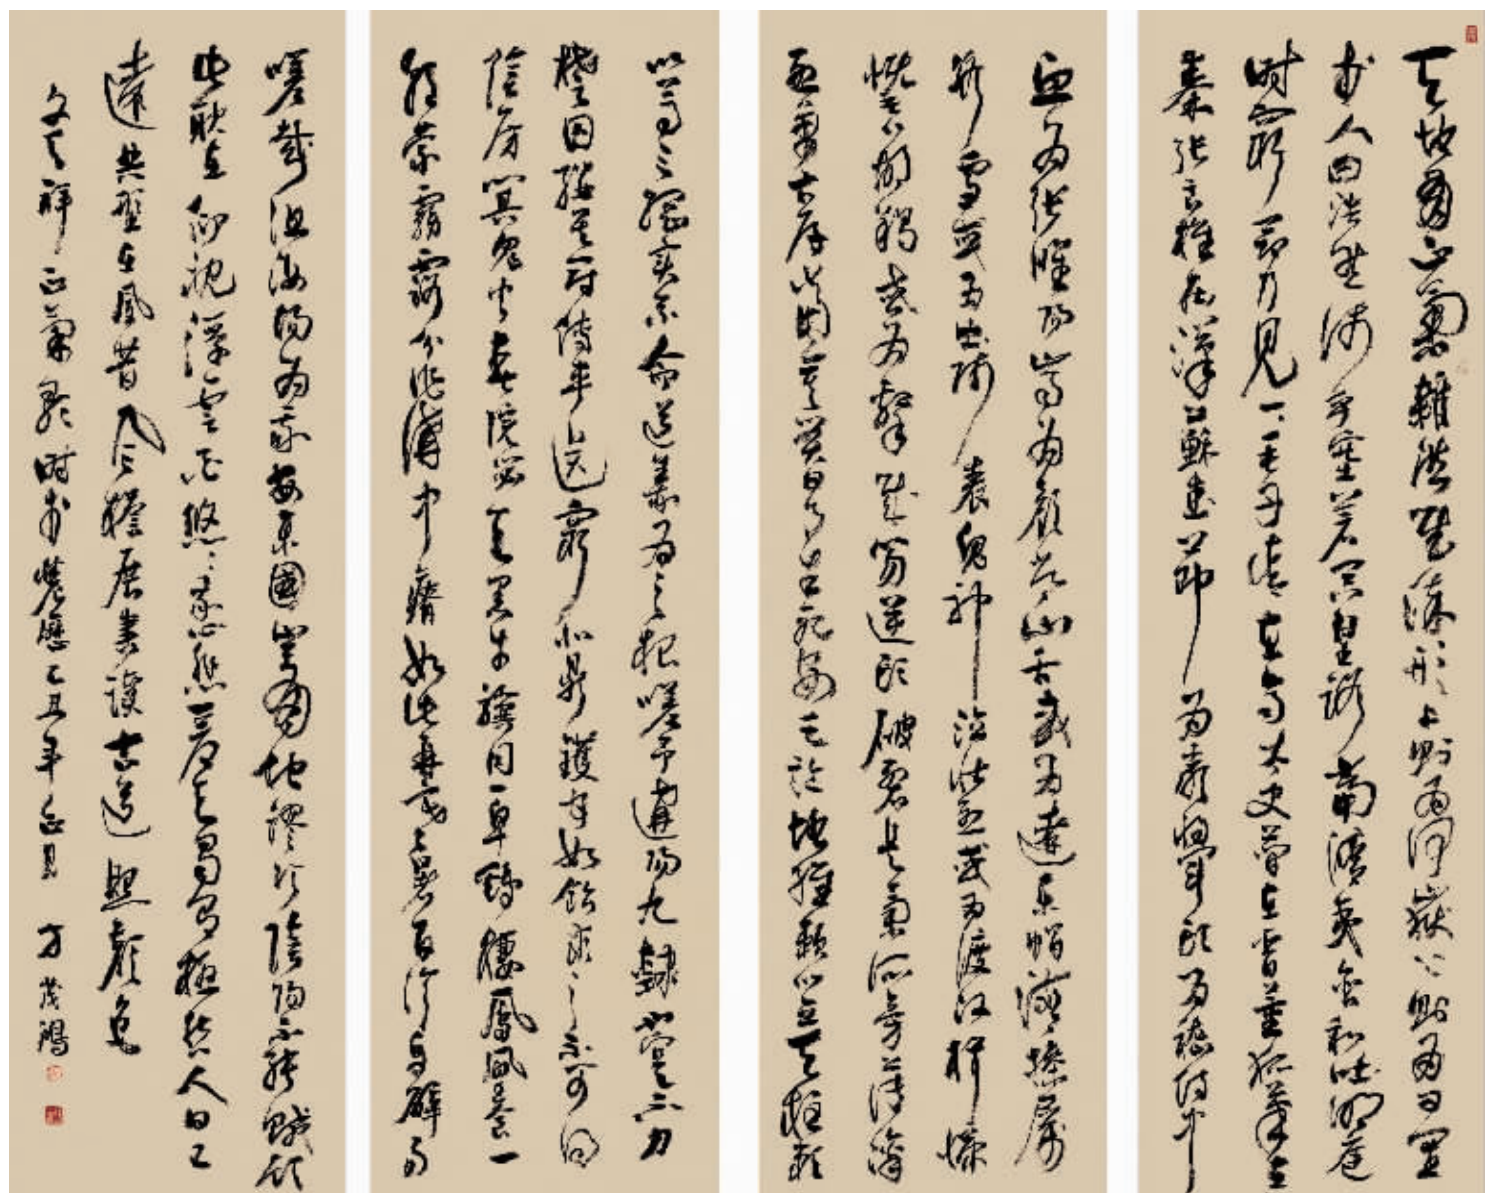 天地有正氣雜然賦流形下則為河嶽上則為日星
於人曰浩然沛乎塞蒼冥皇路當清夷含和吐明庭
時窮節乃見一一垂丹青在齊太史簡在晉董狐筆在
秦張良椎在漢蘇武節為嚴將軍頭為嵇侍中
血為張睢陽齒為顏常山舌或為遼東帽清操厲
冰雪或為出師表鬼神泣壯烈或為渡江楫慷
慨吞胡羯或為擊賊笏逆頭破裂是氣所旁薄凜
烈萬古存當其貫日月生死安足論地維賴以立天柱賴
以尊三綱實系命道義為之根嗟予遘陽九隸也實不力
楚囚纓其冠傳車送窮北鼎鑊甘如飴求之不可得
陰房冥鬼火春院閟天黑牛驥同一皂雞棲鳳凰食一
朝蒙霧露分作溝中瘠如此再寒暑百沴自辟易
嗟哉沮洳場為我安樂國豈有他繆巧陰陽不能賊顧
此耿在仰視浮雲白悠悠我心悲蒼天曷有極哲人日已
遠典型在夙昔風簷展書讀古道照顏色
文天祥正氣歌時於農曆乙丑年正月 方茂鴻